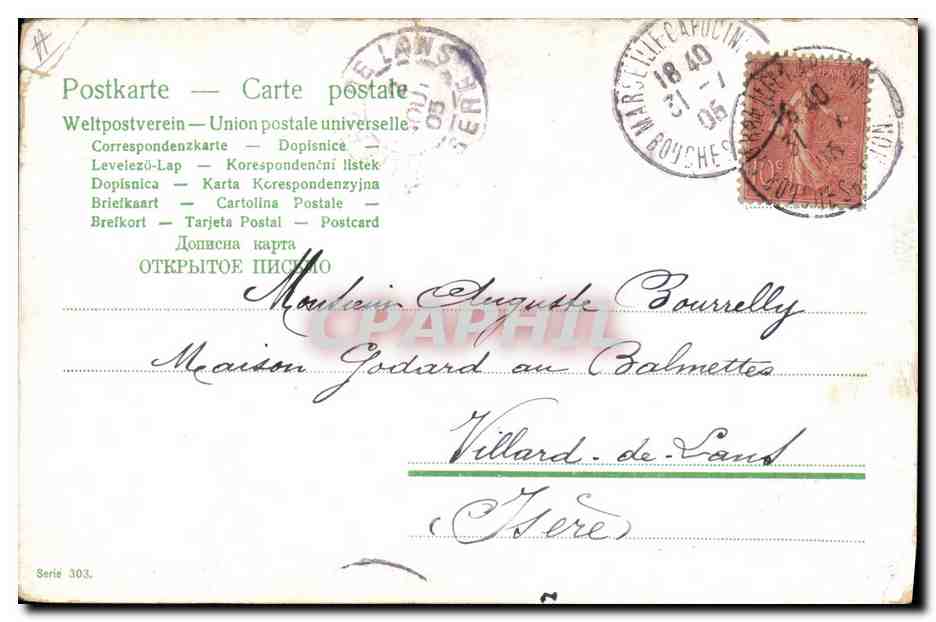 Postkarte — Carte postale
Weltpostverein — Union postale universelle
Correspondenzkarte — Dopisnice —
Levelező-Lap — Korespondenční lístek
Dopisnica — Karta Korespondenzyjna
Briefkaart — Cartolina Postale —
Brefkort — Tarjeta Postal — Postcard
Дописна карта
ОТКРЫТОЕ ПИСЬМО
LANS
ISERE
AOUT
05
MARSEILLE-CAPUCINES
18 40
31 -1
05
BOUCHES
10c
Monsieur Auguste Bourrelly
CPAPHIL
Maison Godard au Balmettes
Villard-de-Lans
(Isère)
Serie 303.